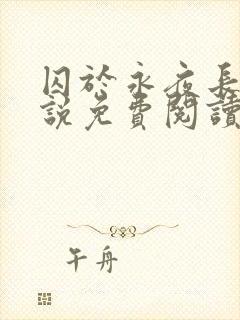 囚於永夜長
說免費閱讀
午舟